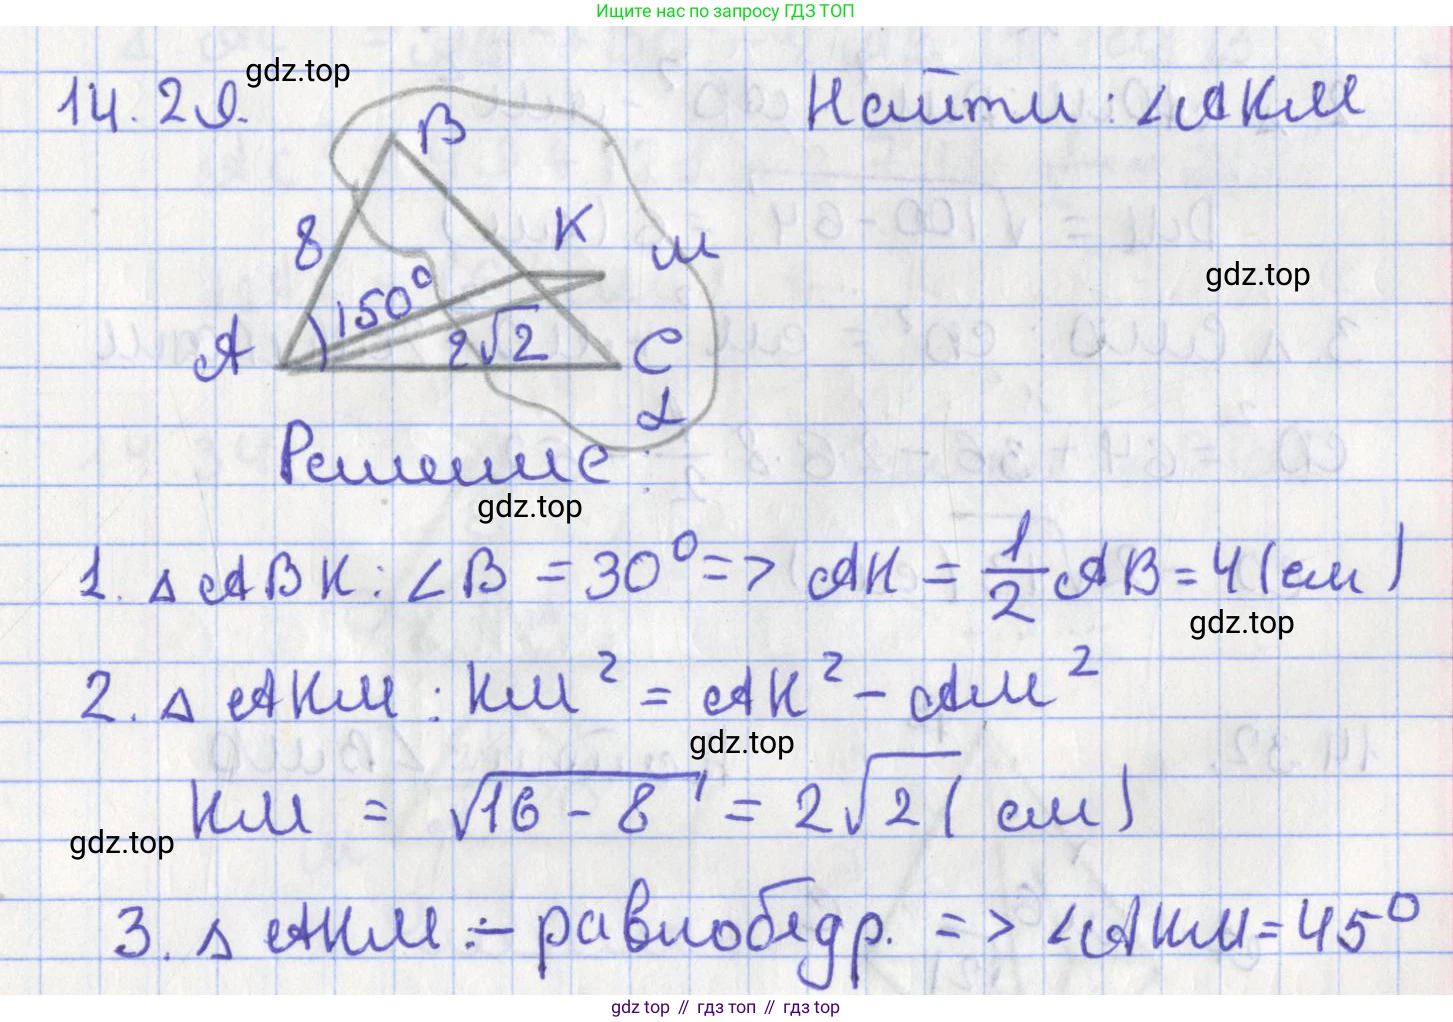 Ищите нас по запросу ГДЗ ТОП
14.29.
gdz.top
Найти: ∠AKM
B
8
K
M
150°
gdz.top
A
2√2
C
α
Решение:
gdz.top
1. △ABK: ∠B = 30° => AK = 1/2 AB = 4 (см)
gdz.top
2. △AKM: KM² = AK² - AM²
gdz.top
KM = √16 - 8 = 2√2 (см)
gdz.top
3. △AKM - равнобедр. => ∠AKM = 45°
gdz top // гдз топ // гдз top